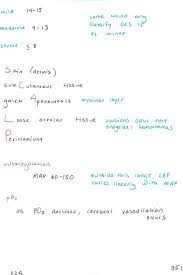 mild 14-15
some would only
classify GCS 15
as minor
moderate 9-13
severe ≤ 8
Skin (dermis)
subCutaneous tissue
galea Aponeurosis muscular layer
Loose areolar tissue avulsions occur here
subgaleal hematomas
Pericranium
autoregulation
MAP 60-150
outside this range, CBF
varies linearly with MAP
pO₂
as PO₂ decreases, cerebral vasodilation
occurs
351